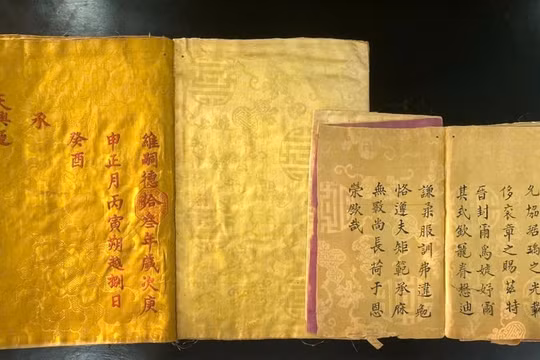 允協
之光載
侈袞章之賜茲特
晉封爾爲婕妤爾
其式欽寵眷懋迪
謙柔服訓弗違
恪遵夫矩範承庥
無斁尚長荷于恩
榮欽哉
維嗣德拾叁年歲次庚
申正月丙寅朔越捌日
癸酉
承
天興運